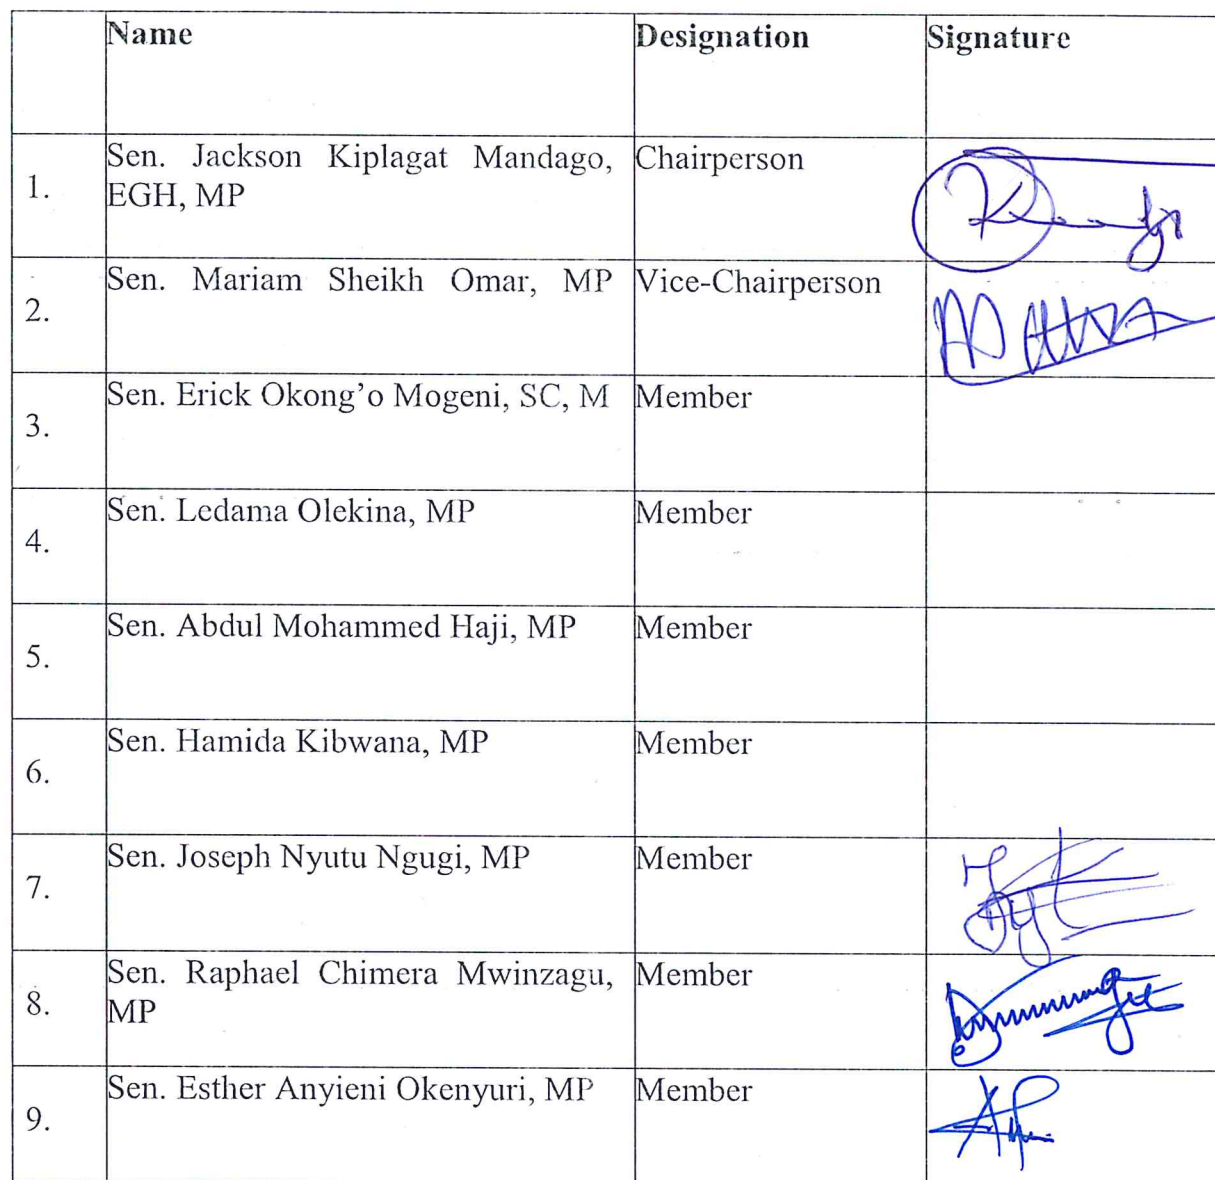 Name Designation Signature
1. Sen. Jackson Kiplagat Mandago, Chairperson
EGH, MP
2. Sen. Mariam Sheikh Omar, MP Vice-Chairperson
3. Sen. Erick Okong'o Mogeni, SC, M Member
4. Sen. Ledama Olekina, MP Member
5. Sen. Abdul Mohammed Haji, MP Member
6. Sen. Hamida Kibwana, MP Member
7. Sen. Joseph Nyutu Ngugi, MP Member
8. Sen. Raphael Chimera Mwinzagu, Member
MP
9. Sen. Esther Anyieni Okenyuri, MP Member